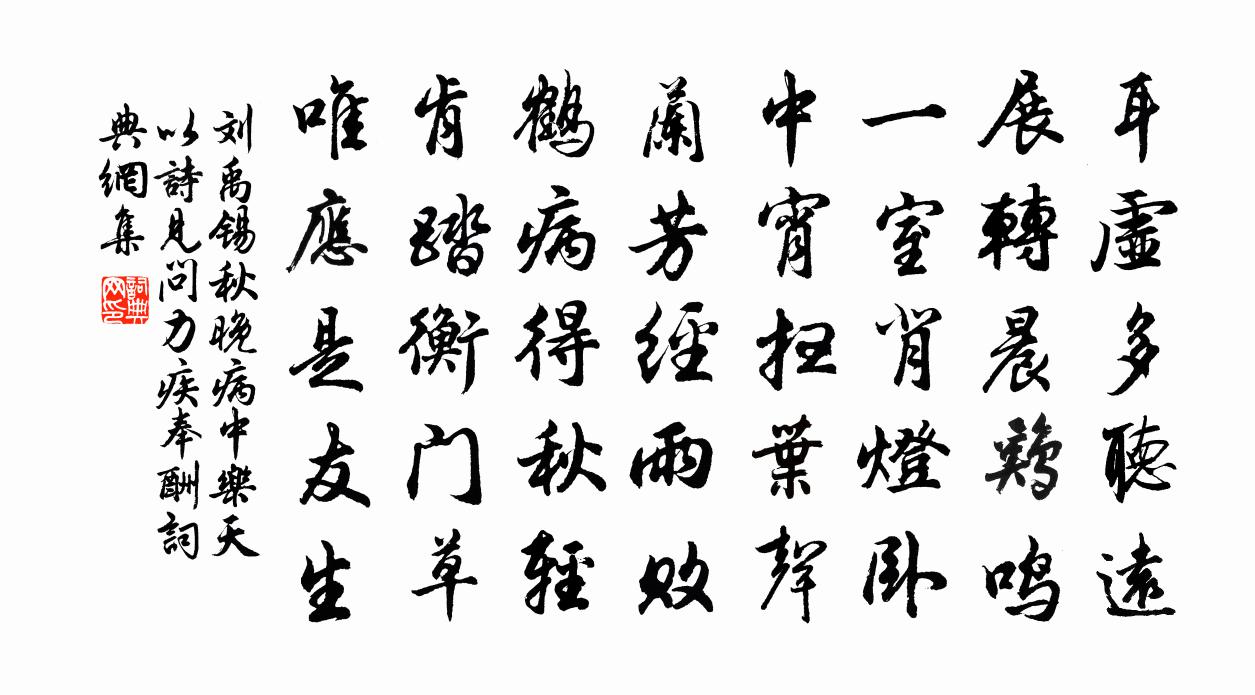 耳虛多聽遠
展轉晨鷄鳴
一室背燈卧
中宵扫葉聲
蘭芳經雨敗
鶴病得秋輕
肯踏衡门草
唯應是友生
刘禹锡秋晚病中樂天
以詩見问力疾奉酬詞
典網集
詞典
网印